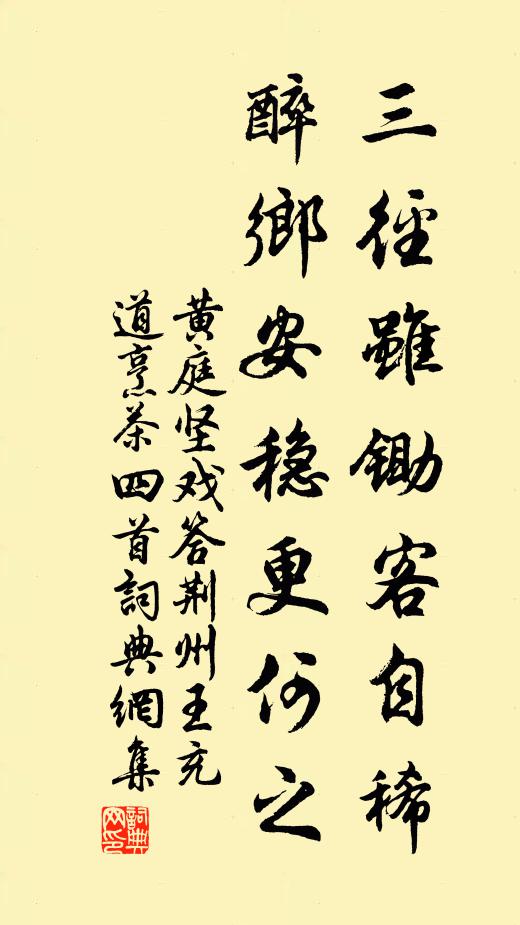 三徑雖鋤客自稀
醉鄉安稳更何之
黄庭坚戏答荆州王充
道烹茶四首詞典網集
詞典
网印